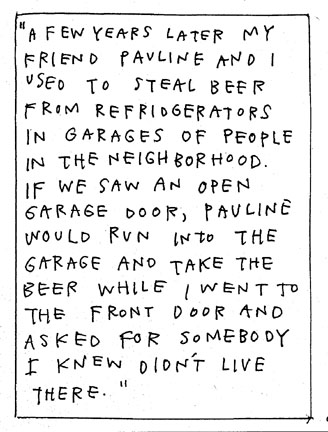 "A FEW YEARS LATER MY
FRIEND PAULINE AND I
USED TO STEAL BEER
FROM REFRIDGERATORS
IN GARAGES OF PEOPLE
IN THE NEIGHBORHOOD.
IF WE SAW AN OPEN
GARAGE DOOR, PAULINE
WOULD RUN INtO THE
GARAGE AND TAKE THE
BEER WHILE I WENT TO
THE FRONT DOOR AND
ASKED FOR SOMEBODY
I KNEW DIDN'T LIVE
THERE."